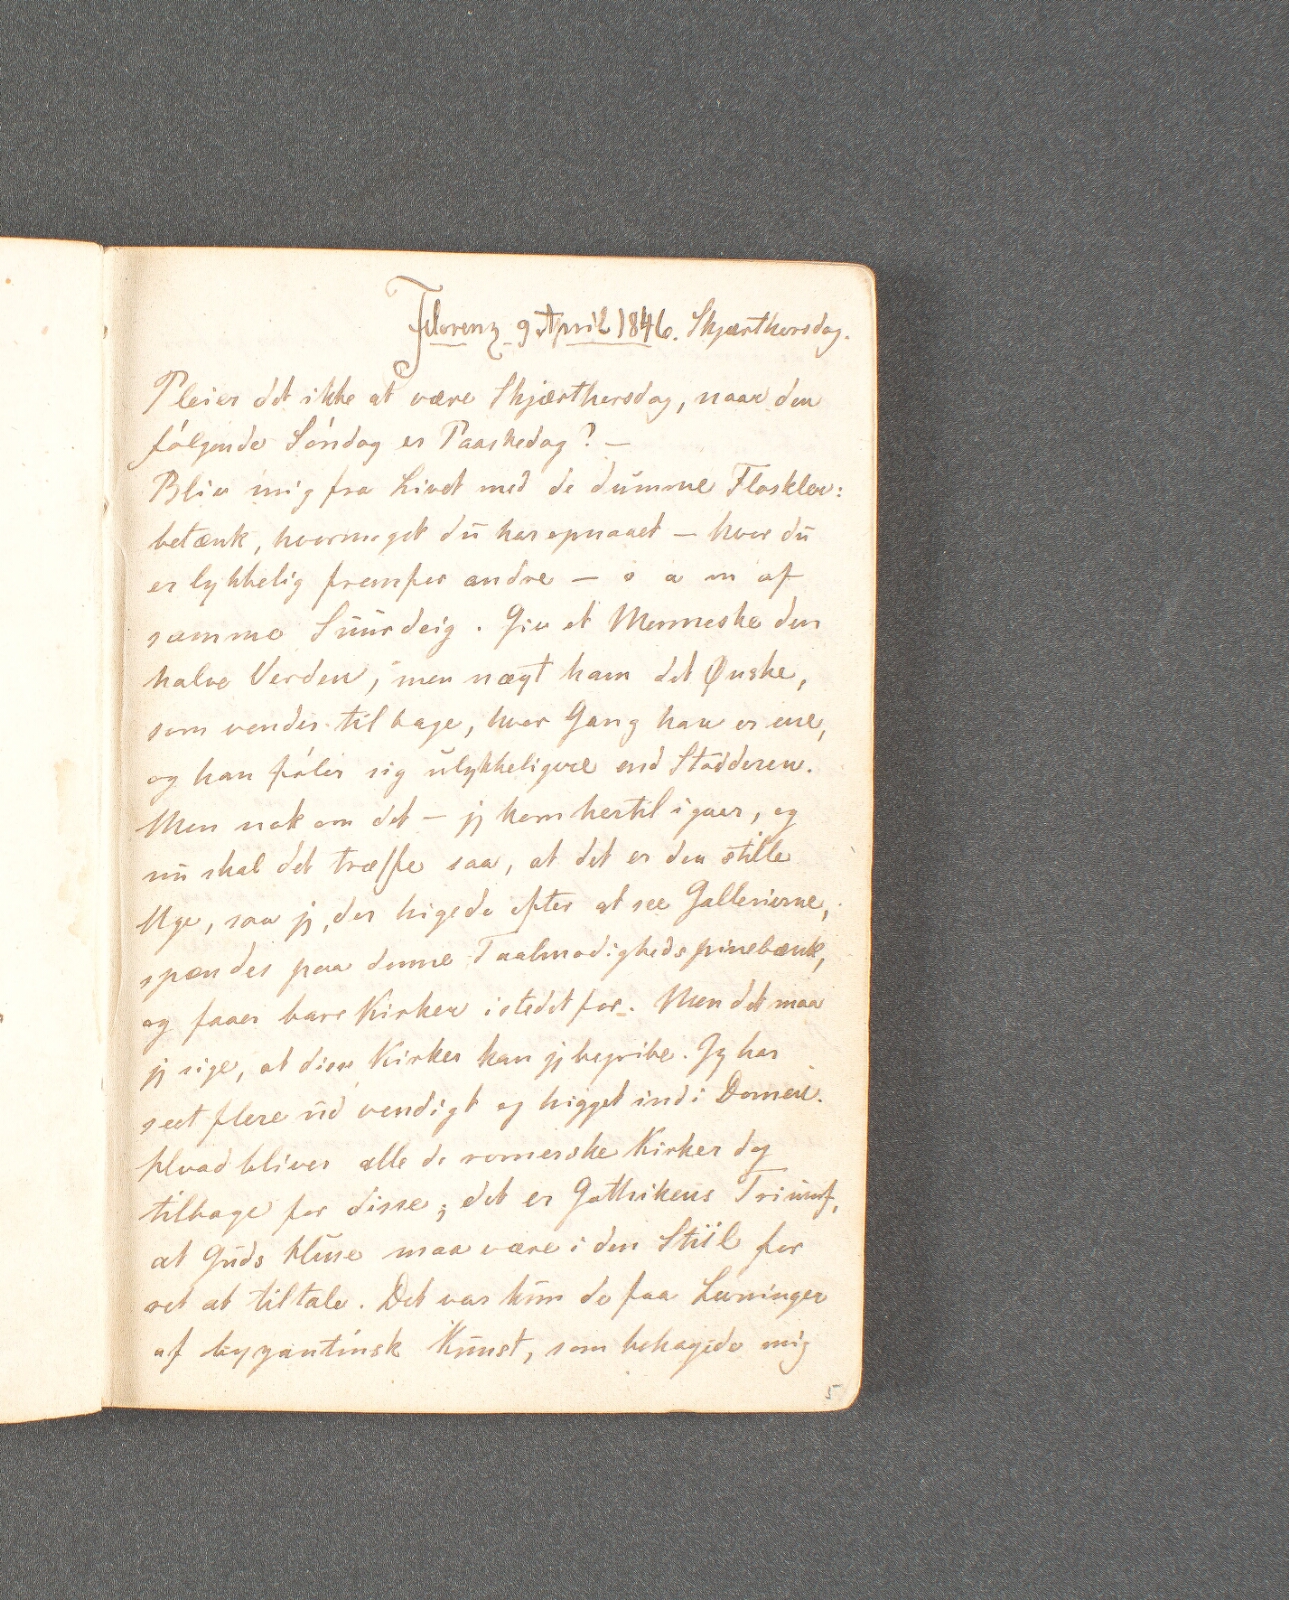 Florenz 9 April 1846. Skjærthorsdag.
Pleier det ikke at være Skjærthorsdag, naar den
følgende Søndag er Paaskedag? —
Bliv mig fra Livet med de dumme Floskler:
betænk, hvormeget du har opnaaet — hvor du
er lykkelig fremfor andre — o a m af
samme Suurdeig. Giv et Menneske den
halve Verden, men nægt ham det Ønske,
som vender tilbage, hver Gang han er ene,
og han føler sig ulykkeligere end Stodderen.
Men nok om det — jg kom hertil igaar, og
nu skal det træffe saa, at det er den stille
Uge, saa jg, der higede efter at see Gallerierne,
spændes paa denne Taalmodighedspinebænk,
og faaer bare Kirker istedetfor. Men det maa
jg sige, at disse Kirker kan jg begribe. Jg har
seet flere udvendigt og kigget ind i Domen.
Hvad bliver alle de romerske Kirker dog
tilbage for disse; det er Gothikens Triumf,
at Guds Huse maa være i den Stiil for
ret at tiltale. Det var kun de faa Levninger
af byzantinsk Kunst, som behagede mig
5